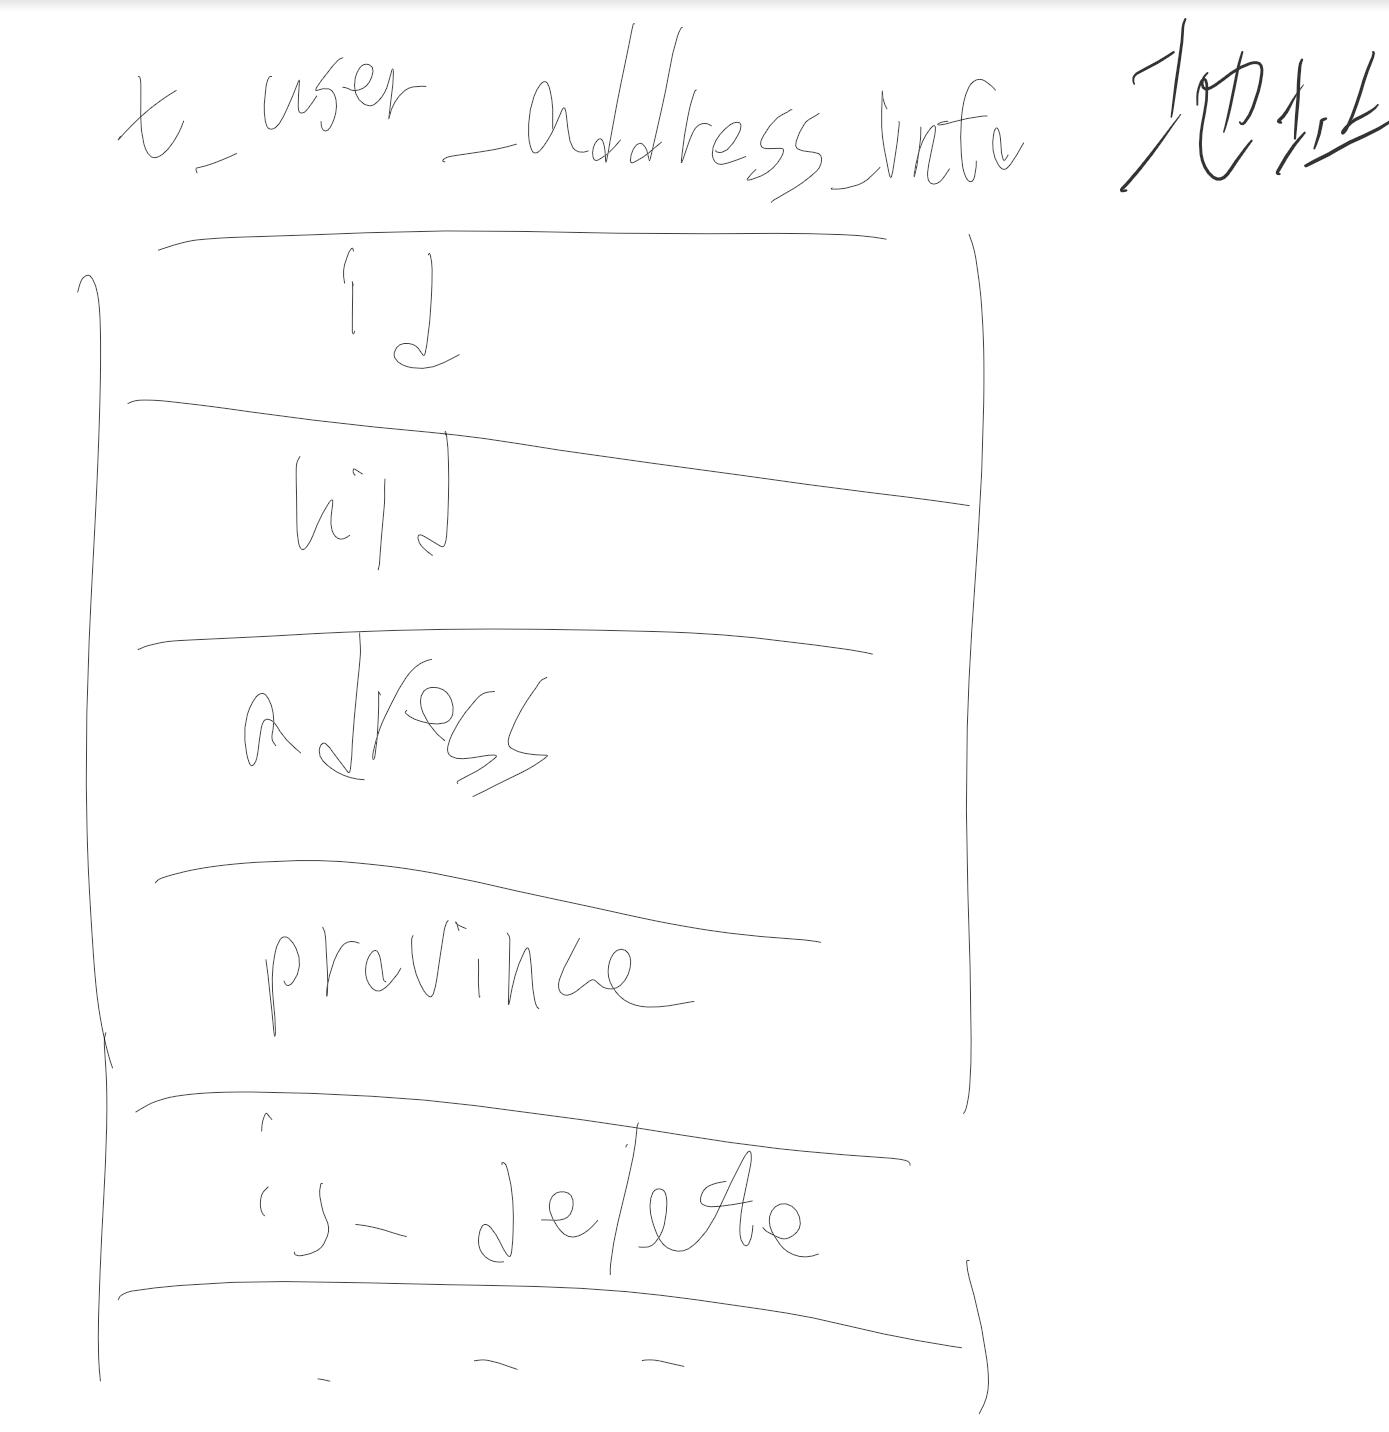 t_user_address_info 地址
id
uid
adress
province
is_delete
- - -